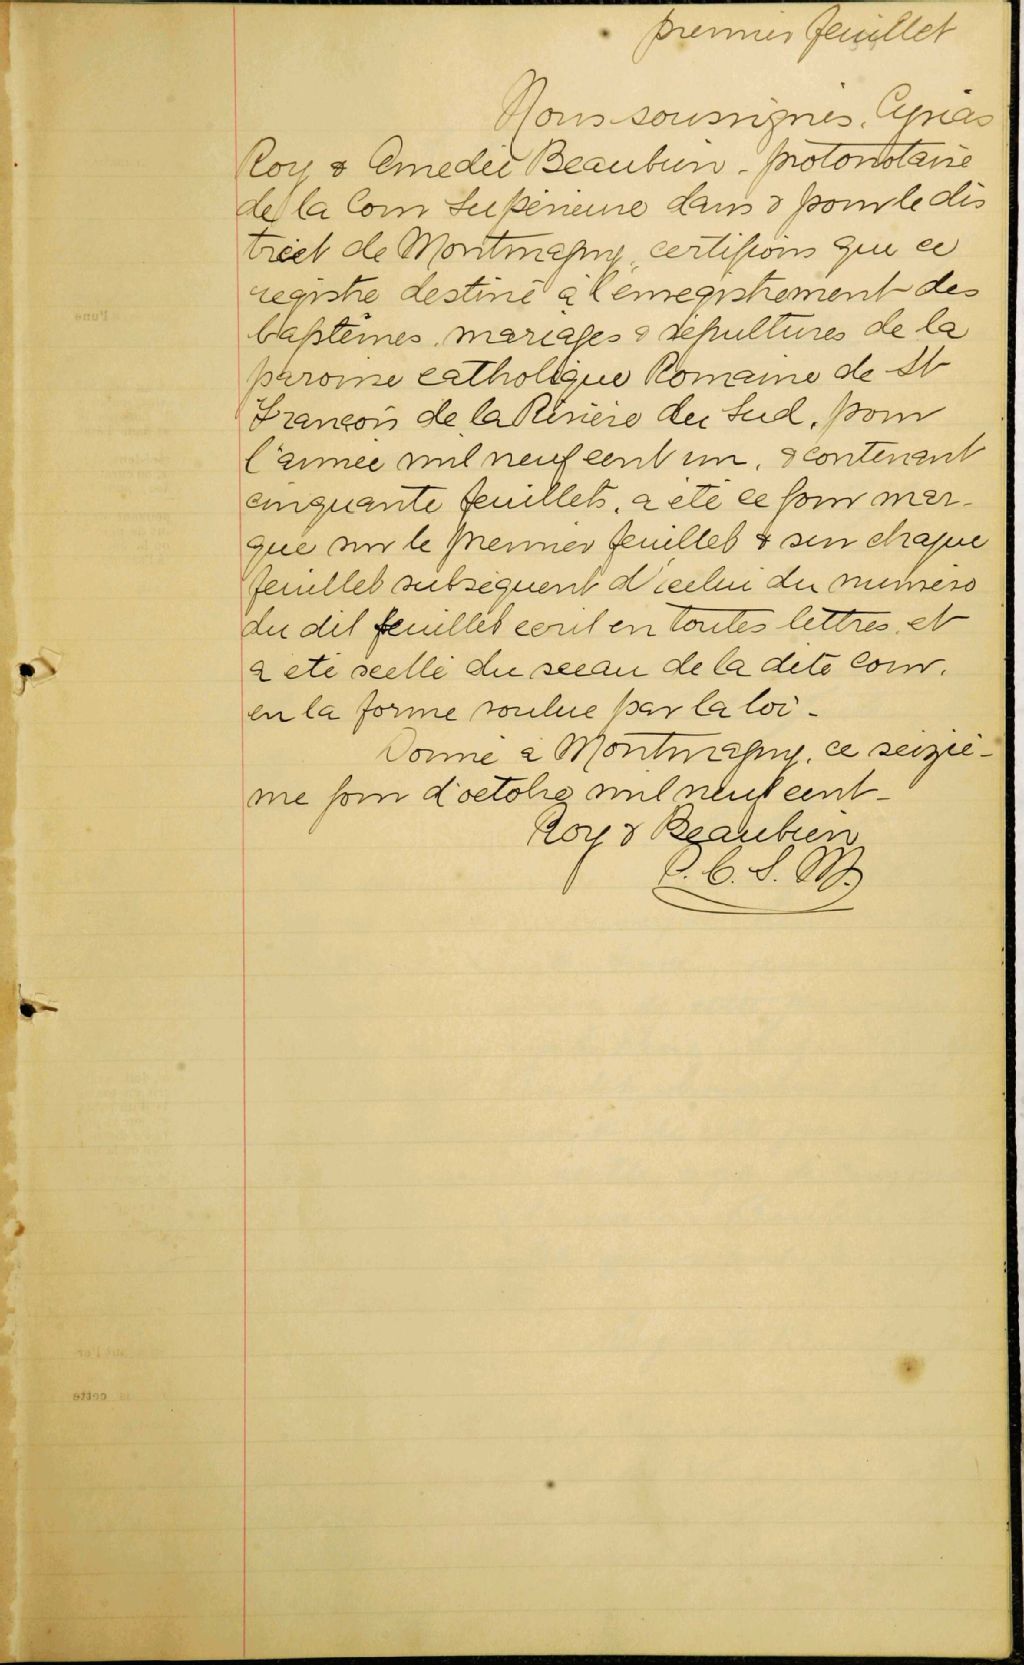 premier feuillet
Nous soussignés, Cyrias
Roy & Amedée Beaubien - protonotaire
de la Cour Supérieure dans & pour le dis
trict de Montmagny, certifions que ce
registre destiné à l'enregistrement des
baptêmes, mariages & sépultures de la
paroisse catholique Romaine de St
François de la Rivière du Sud, pour
l'année mil neuf cent un, & contenant
cinquante feuillets, a été ce jour mar-
qué sur le premier feuillet & sur chaque
feuillet subséquent d'icelui du numéro
du dit feuillet écrit en toutes lettres, et
a été scellé du sceau de la dite Cour,
en la forme voulue par la loi -
Donné à Montmagny, ce seiziè-
me jour d'octobre mil neuf cent -
Roy & Beaubien
P. C. S. M.
cette